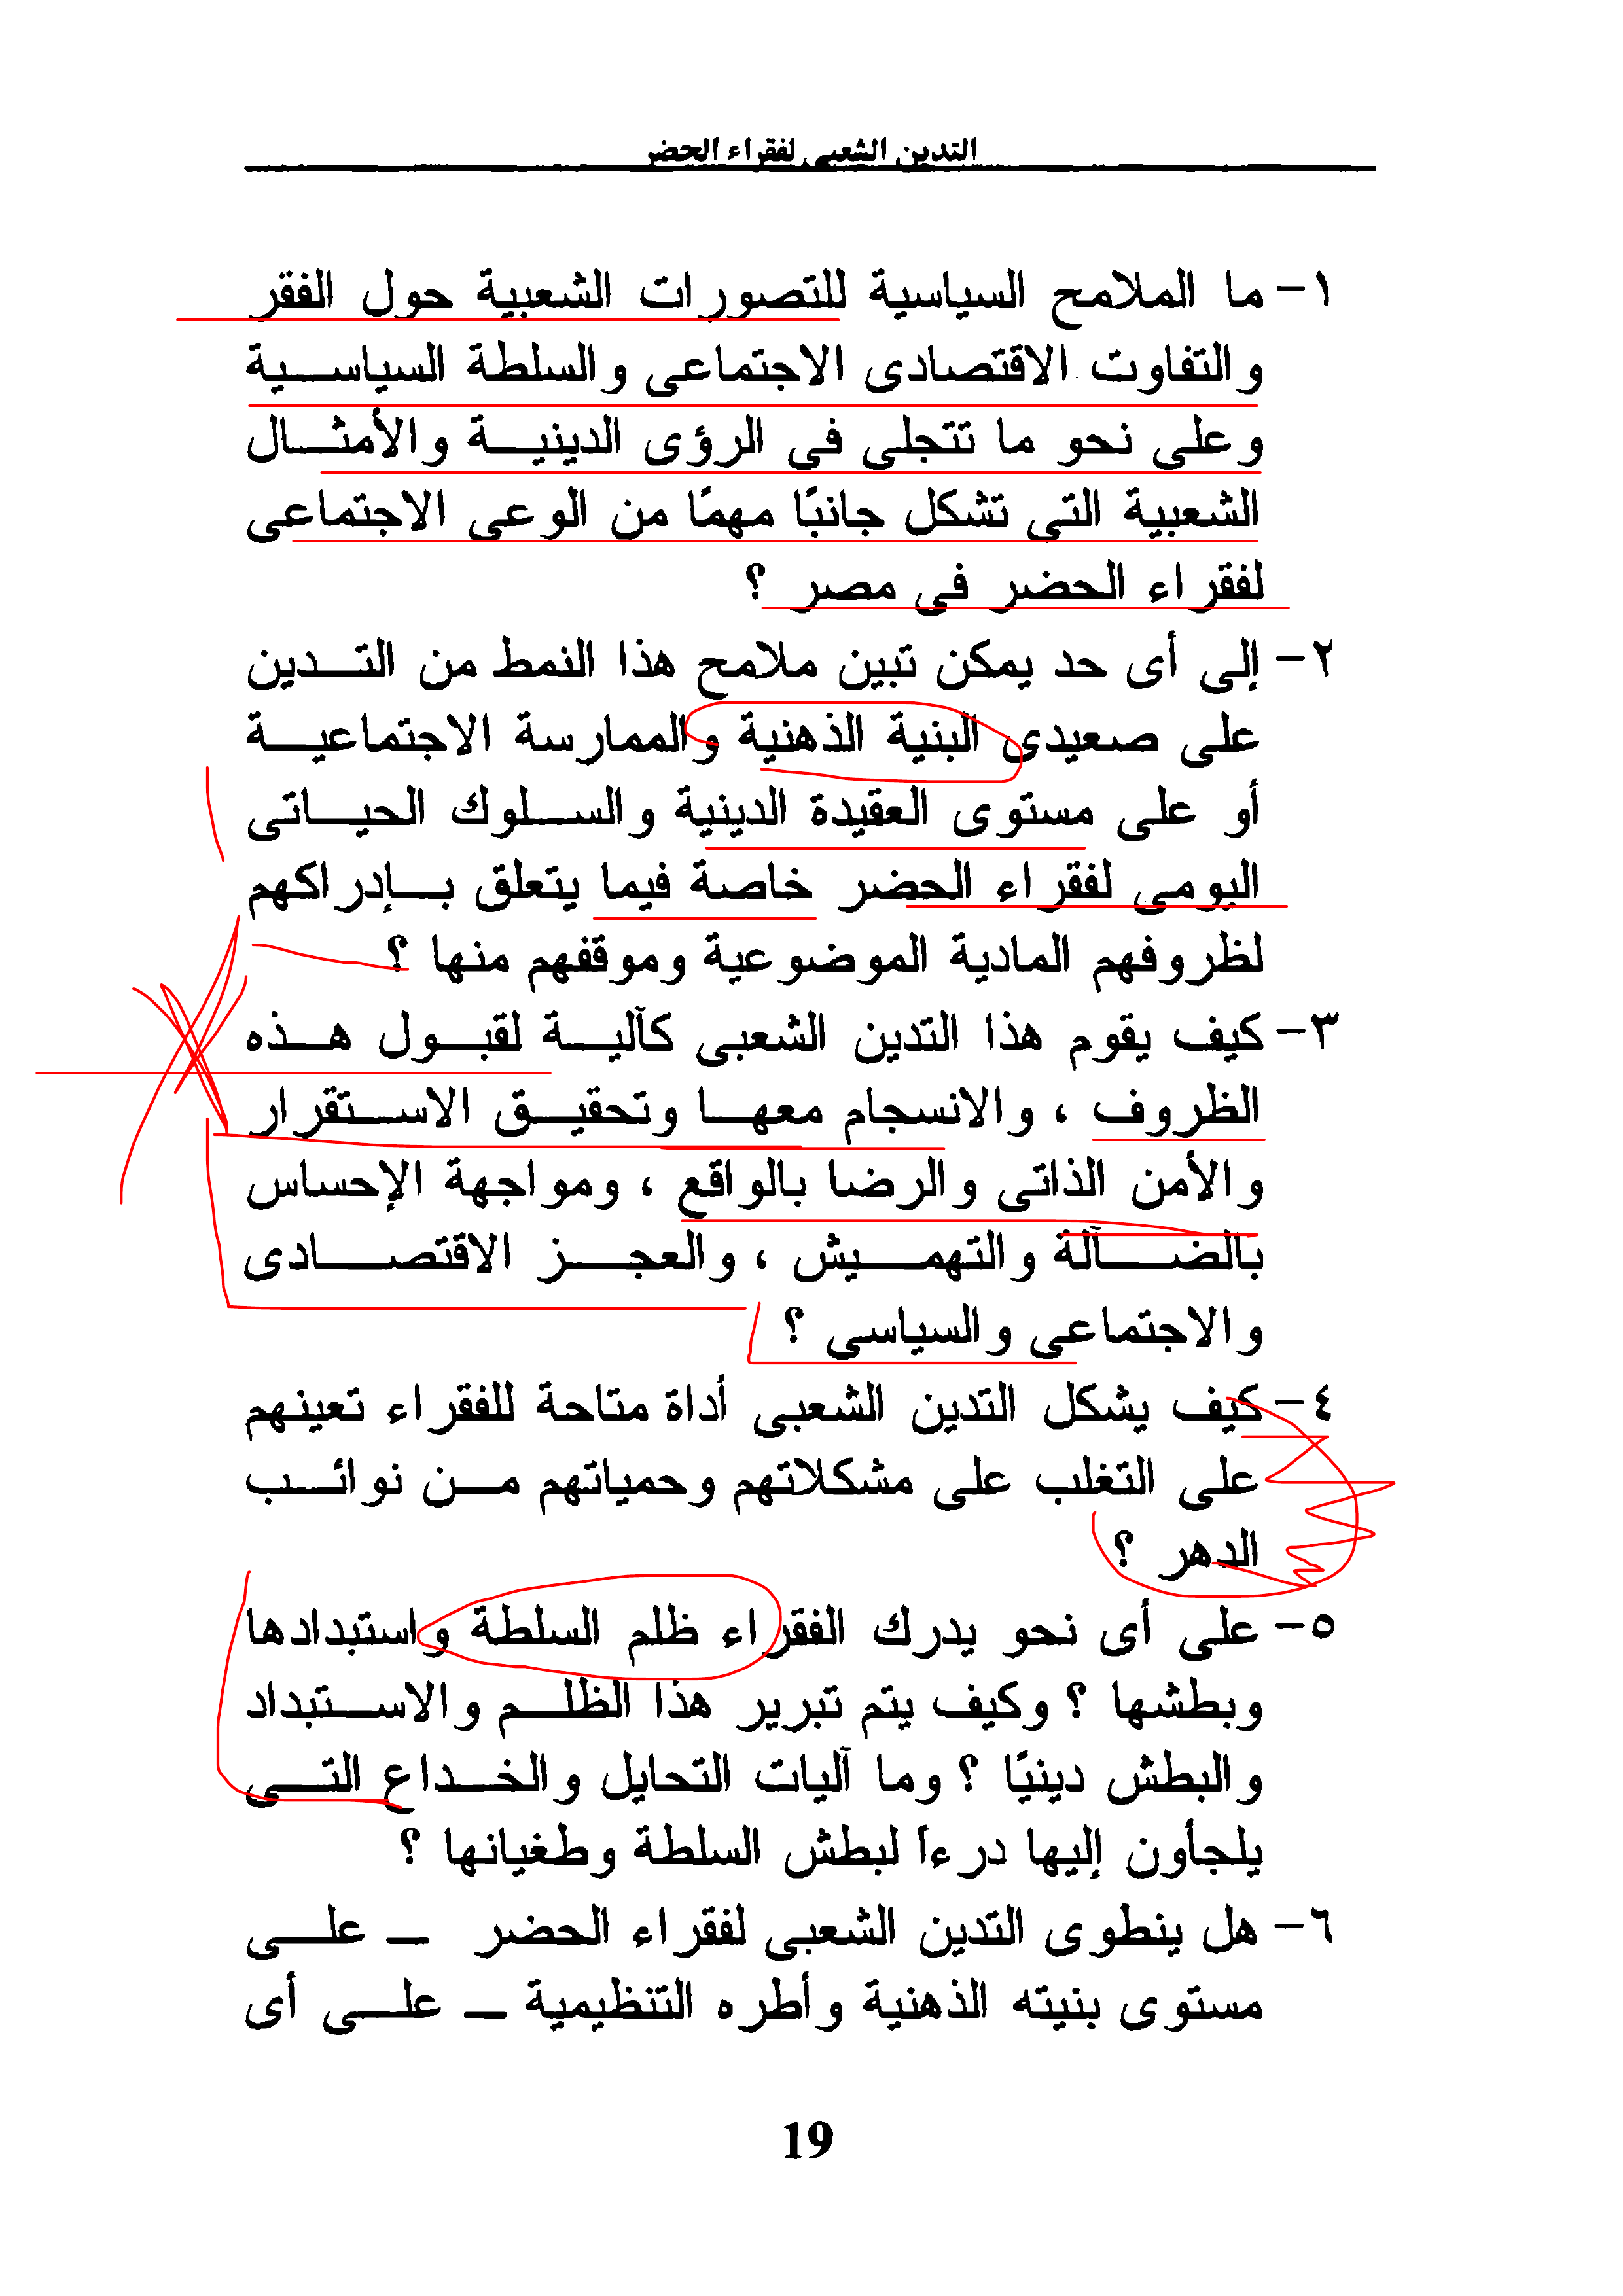 التدين الشعبى لفقراء الحضر
١- ما الملامح السياسية للتصورات الشعبية حول الفقر
والتفاوت الاقتصادى الاجتماعى والسلطة السياسية
وعلى نحو ما تتجلى فى الرؤى الدينية والأمثال
الشعبية التى تشكل جانبًا مهمًا من الوعى الاجتماعى
لفقراء الحضر فى مصر ؟
٢- إلى أى حد يمكن تبين ملامح هذا النمط من التدين
على صعيدى البنية الذهنية والممارسة الاجتماعية
أو على مستوى العقيدة الدينية والسلوك الحياتى
اليومى لفقراء الحضر خاصة فيما يتعلق بإدراكهم
لظروفهم المادية الموضوعية وموقفهم منها ؟
٣- كيف يقوم هذا التدين الشعبى كآلية لقبول هذه
الظروف ، والانسجام معها وتحقيق الاستقرار
والأمن الذاتى والرضا بالواقع ، ومواجهة الإحساس
بالضآلة والتهميش ، والعجز الاقتصادى
والاجتماعى والسياسى ؟
٤- كيف يشكل التدين الشعبى أداة متاحة للفقراء تعينهم
على التغلب على مشكلاتهم وحمياتهم من نوائب
الدهر ؟
٥- على أى نحو يدرك الفقراء ظلم السلطة واستبدادها
وبطشها ؟ وكيف يتم تبرير هذا الظلم والاستبداد
والبطش دينيًا ؟ وما آليات التحايل والخداع التى
يلجأون إليها درءاً لبطش السلطة وطغيانها ؟
٦- هل ينطوى التدين الشعبى لفقراء الحضر ــ على
مستوى بنيته الذهنية وأطره التنظيمية ــ على أى
19